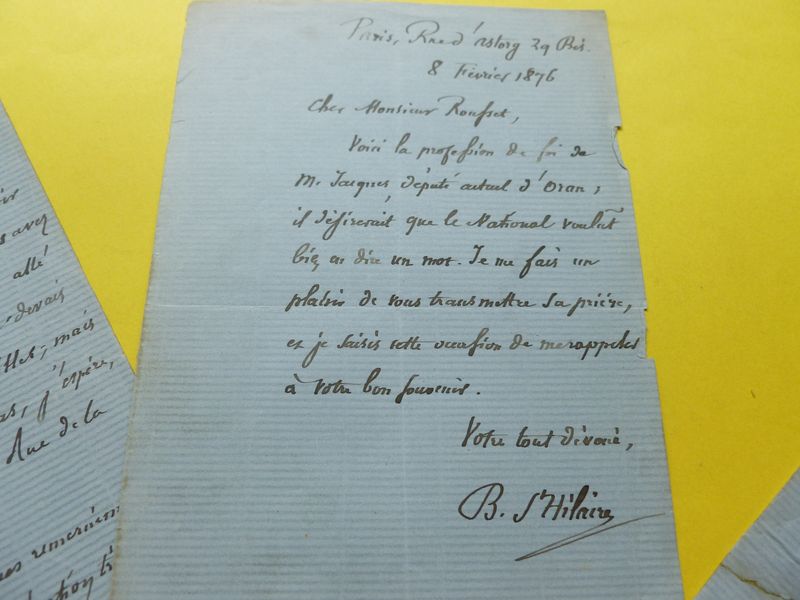 Paris, Rue d'astorg 29 Bis.
8 Février 1876
Cher Monsieur Rousset,
Voici la profession de foi de
M. Jacques, député actuel d'Oran;
il désirerait que le National voulût
bien en dire un mot. Je me fais un
plaisir de vous transmettre sa prière,
et je saisis cette occasion de me rappeler
à votre bon souvenir.
Votre tout dévoué,
B. St Hilaire
avez
allé
devais
mais
j'espère,
Rue de la